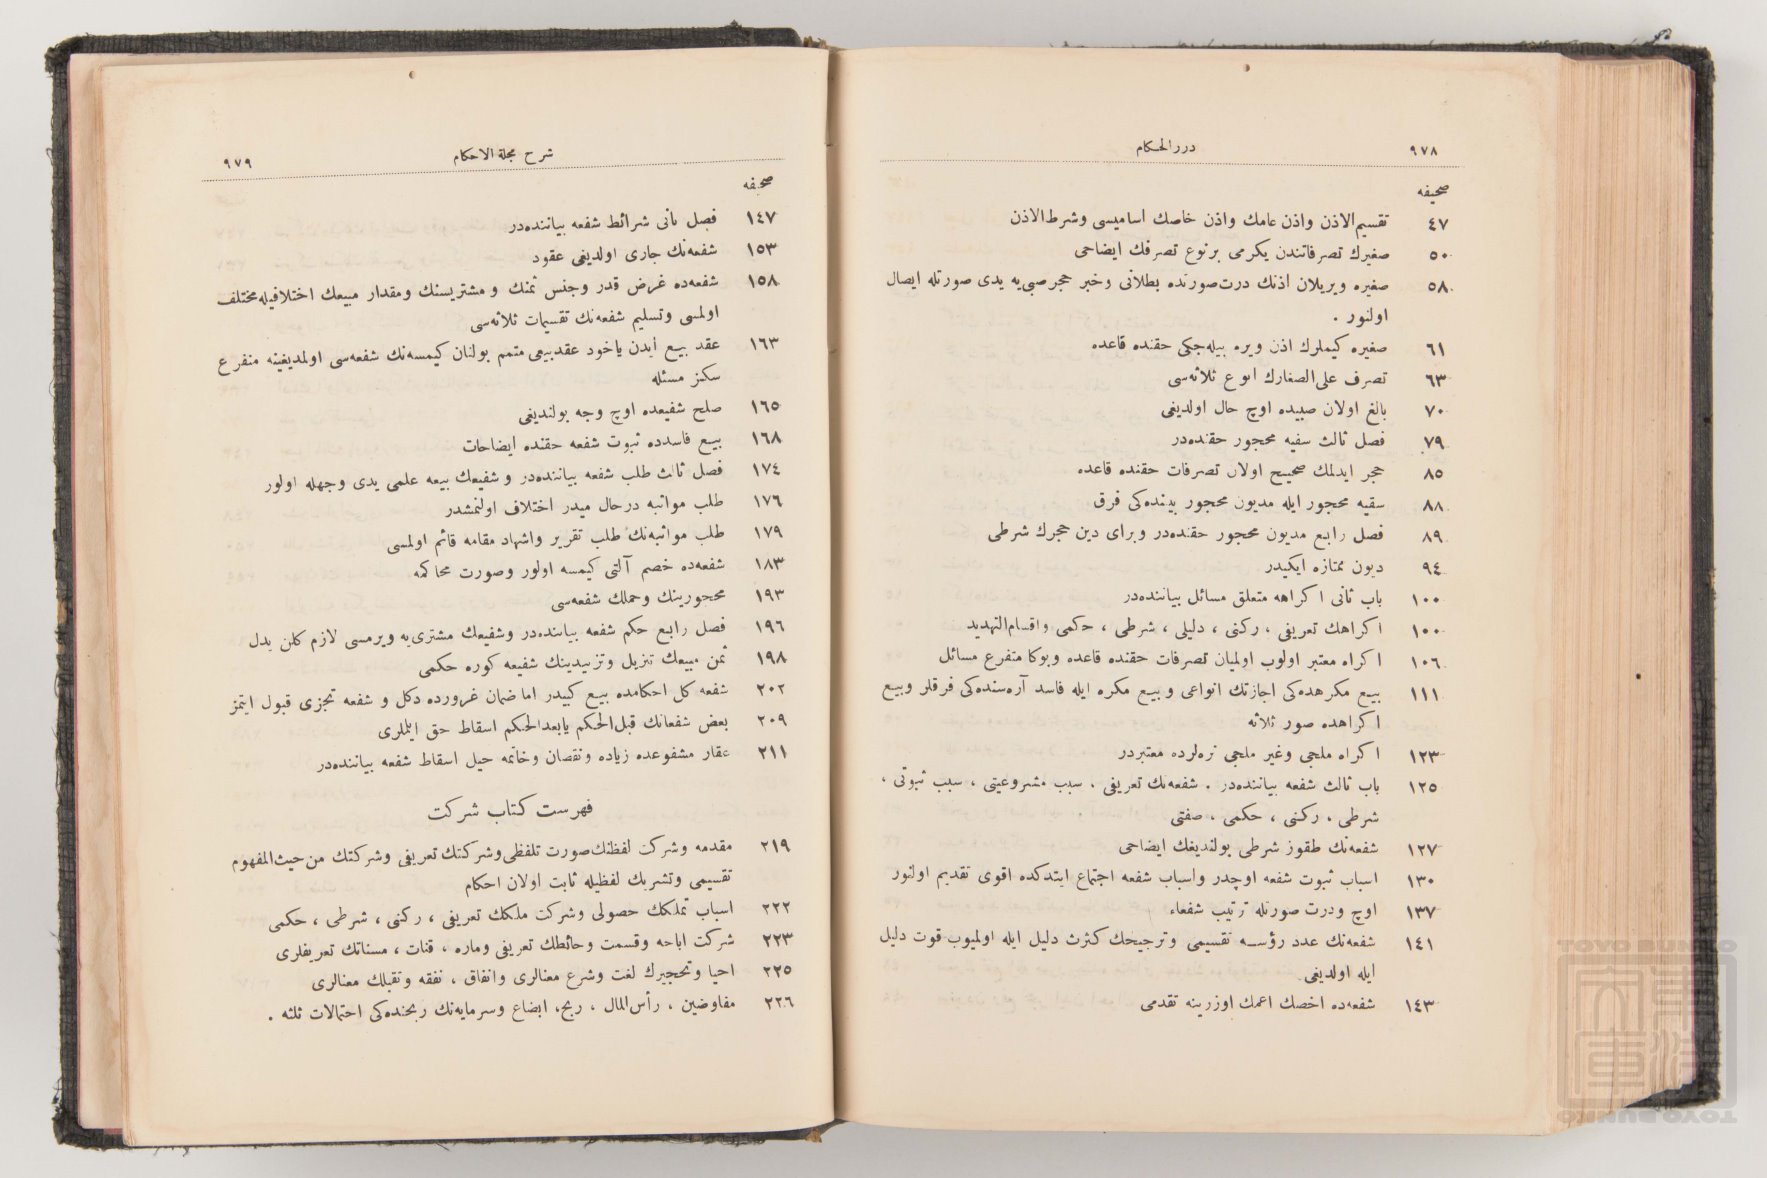 ٩٧٨
دررالحكام
صحيفه
٤٧ تقسيم‌الاذن واذن عامك واذن خاصك اساميسى وشرط‌الاذن
٥٠ صغيرك تصرفاتندن يكرمى برنوع تصرفك ايضاحى
٥٨ صغيره ويريلان اذنك درت‌صورنده بطلانى وخبر حجرصبى‌يه يدى صورتله ايصال
اولنور .
٦١ صغيره كيملرك اذن ويره بيله‌جكى حقنده قاعده
٦٣ تصرف على‌الصغارك انوع ثلاثه‌سى
٧٠ بالغ اولان صبيده اوچ حال اولديغى
٧٩ فصل ثالث سفيه محجور حقنده‌در
٨٥ حجر ايدلمك صحيح اولان تصرفات حقنده قاعده
٨٨ سفيه محجور ايله مديون محجور بيننده‌كى فرق
٨٩ فصل رابع مديون محجور حقنده‌در وبراى دين حجرك شرطى
٩٤ ديون ممتازه ايكيدر
١٠٠ باب ثانى اكراهه متعلق مسائل بياننده‌در
١٠٠ اكراهك تعريفى ، ركنى ، دليلى ، شرطى ، حكمى واقسام‌التهديد
١٠٦ اكراه معتبر اولوب اولميان تصرفات حقنده قاعده وبوكا متفرع مسائل
١١١ بيع مكرهده‌كى اجازتك انواعى وبيع مكره ايله فاسد آره‌سنده‌كى فرقلر وبيع
اكراهده صور ثلاثه
١٢٣ اكراه ملجى وغير ملجى نره‌لرده معتبردر
١٢٥ باب ثالث شفعه بياننده‌در . شفعه‌نك تعريفى ، سبب مشروعيتى ، سبب ثبوتى ،
شرطى ، ركنى ، حكمى ، صفتى
١٢٧ شفعه‌نك طقوز شرطى بولنديغك ايضاحى
١٣٠ اسباب ثبوت شفعه اوچدر واسباب شفعه اجتماع ايتدكده اقوى تقديم اولنور
١٣٧ اوچ ودرت صورتله ترتيب شفعاء
١٤١ شفعه‌نك عدد رؤسه تقسيمى وترجيحك كثرت دليل ايله اولميوب قوت دليل
ايله اولديغى
١٤٣ شفعه‌ده اخصك اعمك اوزرينه تقدمى
شرح مجلة الاحكام
٩٧٩
صحيفه
١٤٧ فصل ثانى شرائط شفعه بياننده‌در
١٥٣ شفعه‌نك جارى اولديغى عقود
١٥٨ شفعه‌ده غرض قدر وجنس ثمنك ومشتريسنك ومقدار مبيعك اختلافيله‌مختلف
اولمسى وتسليم شفعه‌نك تقسيمات ثلاثه‌سى
١٦٣ عقد بيع ايدن ياخود عقدبيعى متمم بولنان كيمسه‌نك شفعه‌سى اولمديغينه متفرع
سكز مسئله
١٦٥ صلح شفيعده اوچ وجه بولنديغى
١٦٨ بيع فاسدده ثبوت شفعه حقنده ايضاحات
١٧٤ فصل ثالث طلب شفعه بياننده‌در و شفيعك بيعه علمى يدى وجهله اولور
١٧٦ طلب مواثبه درحال ميدر اختلاف اولنمشدر
١٧٩ طلب مواثبه‌نك طلب تقرير واشهاد مقامه قائم اولمسى
١٨٣ شفعه‌ده خصم آلتى كيمسه اولور وصورت محاكمه
١٩٣ محجورينك وحملك شفعه‌سى
١٩٦ فصل رابع حكم شفعه بياننده‌در وشفيعك مشترى‌يه ويرمسى لازم كلن بدل
١٩٨ ثمن مبيعك تنزيل وتزييدينك شفيعه كوره حكمى
٢٠٢ شفعه كل احكامده بيع كبيدر اما ضمان غرورده دكل و شفعه تجزى قبول ايتمز
٢٠٩ بعض شفعانك قبل‌الحكم يابعدالحكم اسقاط حق ايلملرى
٢١١ عقار مشفوعده زياده ونقصان وخاتمه حيل اسقاط شفعه بياننده‌در
فهرست كتاب شركت
٢١٩ مقدمه وشركت لفظنك‌صورت تلفظى‌وشركتك‌تعريفى وشركتك من‌حيث‌المفهوم
تقسيمى وتشريك لفظيله ثابت اولان احكام
٢٢٢ اسباب تملكك حصولى وشركت ملكك تعريفى ، ركنى ، شرطى ، حكمى
٢٢٣ شركت اباحه وقسمت وحائطك تعريفى وماره ، قنات ، مسناتك تعريفلرى
٢٢٥ احيا وتحجيرك لغت وشرع معنالرى وانفاق ، نفقه وتقبلك معنالرى
٢٢٦ مفاوضين ، رأس‌المال ، ربح، ابضاع وسرمايه‌نك ربحنده‌كى احتمالات ثلثه .
TOYO BUNKO